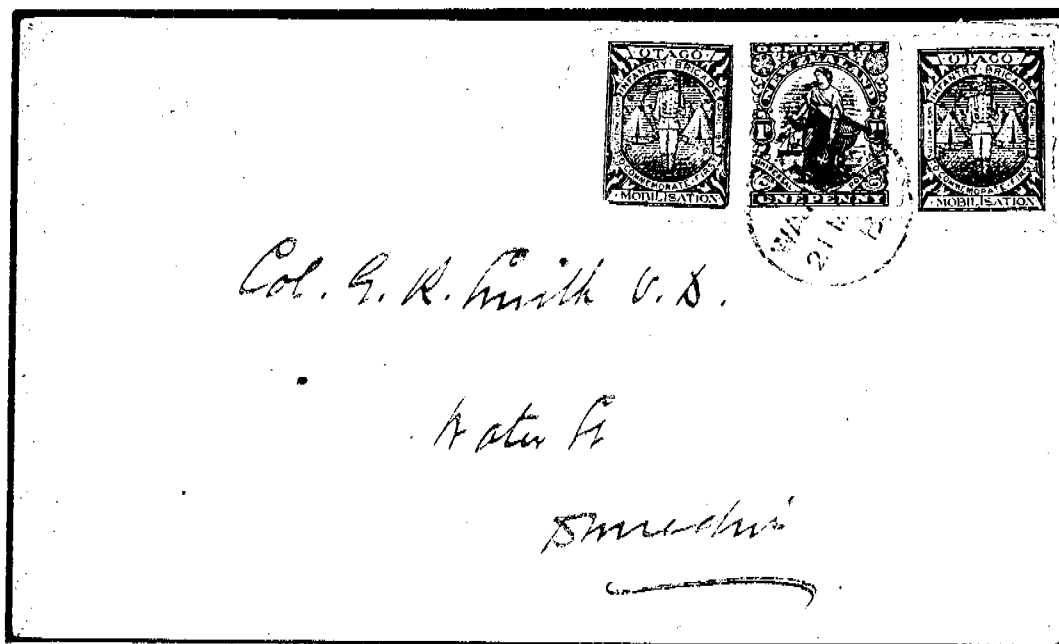 OTAGO
INFANTRY BRIGADE
TO COMMEMORATE FIRST
MOBILISATION
NEW ZEALAND
UNIVERSAL POSTAGE
ONE PENNY
OTAGO
INFANTRY BRIGADE
TO COMMEMORATE FIRST
MOBILISATION
Col. G. R. Smith V. D.
Water St
Dunedin